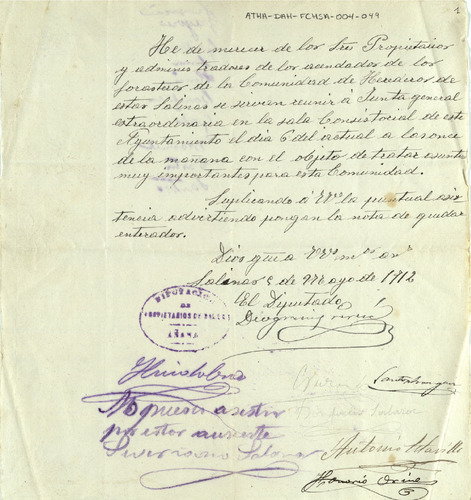 ATHA-DAH-FCMSA-004-049
1
He de merecer de los Sres Propietarios
y administradores de los acudados de los
forasteros de la Comunidad de Herederos de
estas Salinas se servan reunir á Junta general
extraordinaria en la sala Consistorial de este
Ayuntamiento el dia 6 del actual a las once
de la mañana con el objeto de tratar asuntos
muy importantes para esta Comunidad.
Suplicando á Vces la puntual asis-
tencia advertiendo pongan la nota de quedar
enterados.
Dios gue a Vces ms as
Salinas 5 de Mayo de 1912
El Diputado
DIPUTACION
DE
PROPIETARIOS DE
AÑANA
No puedo asistir
por estar ausente
Antonio
Honorio